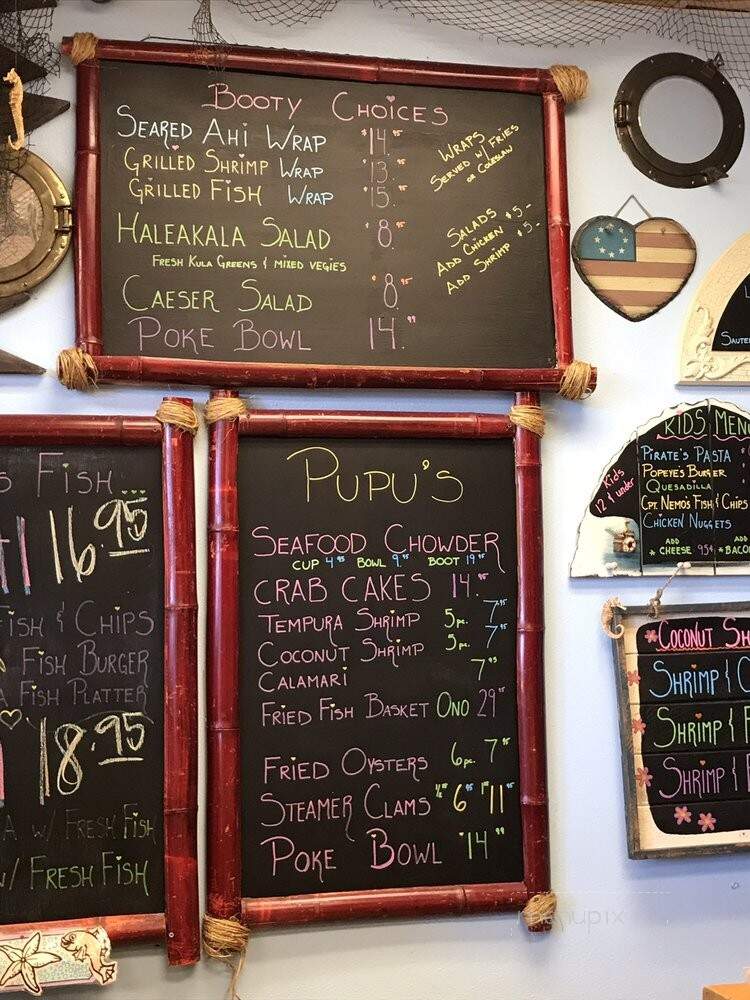 Booty Choices
Seared Ahi Wrap $14.95
Grilled Shrimp Wrap $13.95
Grilled Fish Wrap $15.95
Wraps
Served w/ Fries
or Coleslaw
Haleakala Salad $8.95
Fresh Kula Greens & mixed vegies
Caeser Salad $8.95
Poke Bowl 14.99
Salads
Add Chicken $5-
Add Shrimp $5-
Pupu's
Seafood Chowder
Cup 4.95 Bowl 9.95 Boot 19.95
Crab Cakes 14.95
Tempura Shrimp 5pc. 7.95
Coconut Shrimp 5pc. 7.95
Calamari 7.95
Fried Fish Basket Ono 29
Fried Oysters 6pc. 7.95
Steamer Clams 1/2lb 6.95 1lb 11.95
Poke Bowl $14.99
s Fish...
16.95
Fish & Chips
Fish Burger
a Fish Platter
18.95
a w/ Fresh Fish
w/ Fresh Fish
Saute
Kids Menu
Kids
12 & under
Pirate's Pasta
Popeye's Burger
Quesadilla
Cpt. Nemo's Fish & Chips
Chicken Nuggets
Add
* Cheese 95¢
Add
* Bacon
Coconut Sh
Shrimp & C
Shrimp & F
Shrimp & F
menupix